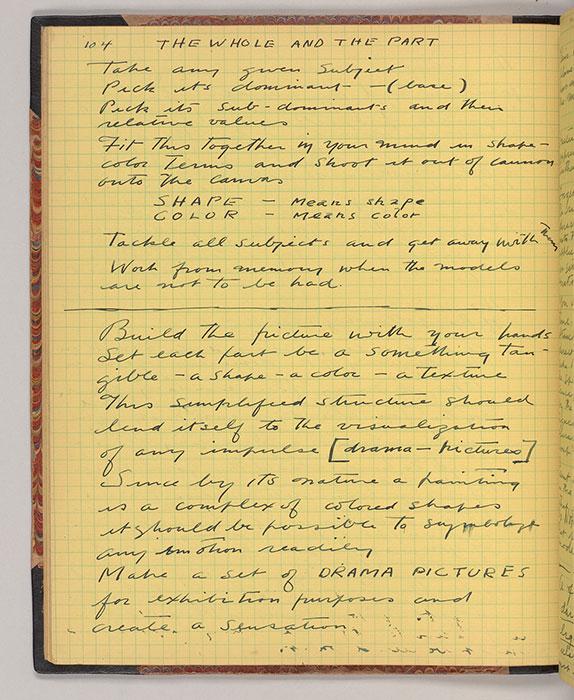 104 THE WHOLE AND THE PART
Take any given subject
Pick its dominant - (base)
Pick its sub-dominants and their
relative values
Fit this together in your mind in shape-
color terms and shoot it out of cannon
onto the canvas
SHAPE - Means shape
COLOR - Means color
Tackle all subjects and get away with them
Work from memory when the models
are not to be had.
Build the picture with your hands
Let each part be a something tan-
gible - a shape - a color - a texture
This simplified structure should
lend itself to the visualization
of any impulse [drama - Pictures]
Since by its nature a painting
is a complex of colored shapes
it should be possible to symbolize
any emotion readily
Make a set of DRAMA PICTURES
for exhibition purposes and
create a sensation